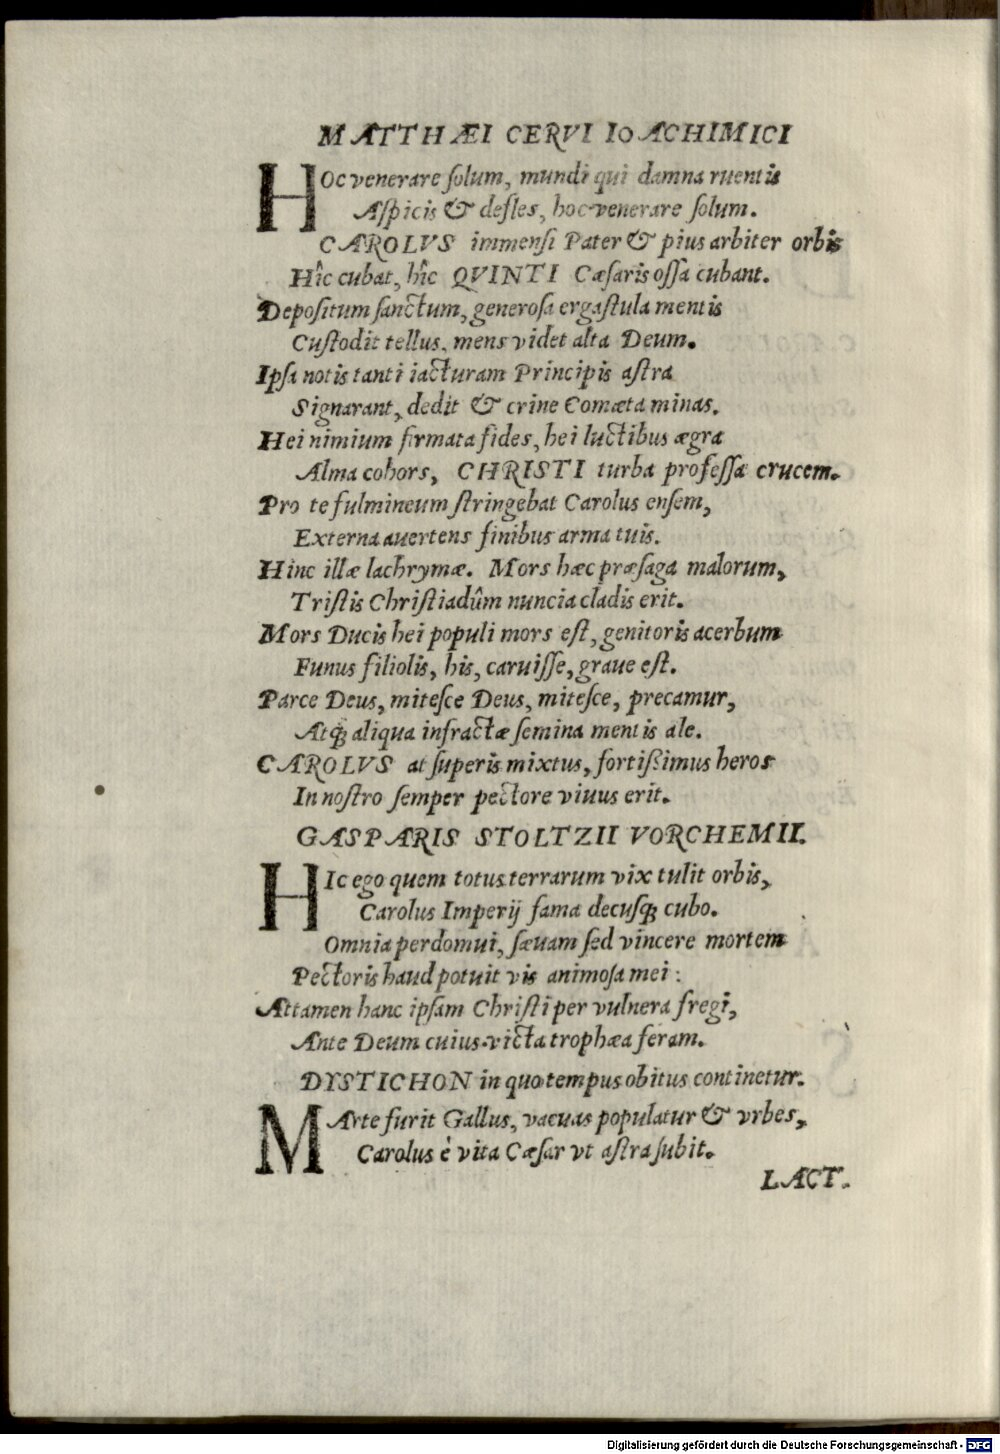 MATTHÆI CERVI IOACHIMICI
HOc venerare ſolum, mundi qui damna ruentis
Aſpicis & defles, hoc venerare ſolum.
CAROLVS immenſi Pater & pius arbiter orbis
Hîc cubat, hîc QVINTI Cæſaris oſſa cubant.
Depoſitum ſanctum, generoſa ergaſtula mentis
Cuſtodit tellus, mens videt alta Deum.
Ipſa notis tanti iacturam Principis aſtra
Signarant, dedit & crine Comæta minas.
Hei nimium firmata fides, hei luctibus ægra
Alma cohors, CHRISTI turba profeſſa crucem.
Pro te fulmineum ſtringebat Carolus enſem,
Externa auertens finibus arma tuis.
Hinc illæ lachrymæ. Mors hæc præſaga malorum,
Triſtis Chriſtiadûm nuncia cladis erit.
Mors Ducis hei populi mors eſt, genitoris acerbum
Funus filiolis, his, caruiſſe, graue eſt.
Parce Deus, miteſce Deus, miteſce, precamur,
Atq; aliqua infractæ ſemina mentis ale.
CAROLVS at ſuperis mixtus, fortißimus heros
In noſtro ſemper pectore viuus erit.
GASPARIS STOLTZII VORCHEMII.
HIc ego quem totus terrarum vix tulit orbis,
Carolus Imperij fama decuſq; cubo.
Omnia perdomui, ſæuam ſed vincere mortem
Pectoris haud potuit vis animoſa mei:
Attamen hanc ipſam Chriſti per vulnera fregi,
Ante Deum cuius victa trophæa feram.
DYSTICHON in quo tempus obitus continetur.
MArte furit Gallus, vacuas populatur & vrbes,
Carolus è vita Cæſar vt aſtra ſubit.
LACT.
Digitalisierung gefördert durch die Deutsche Forschungsgemeinschaft - DFG